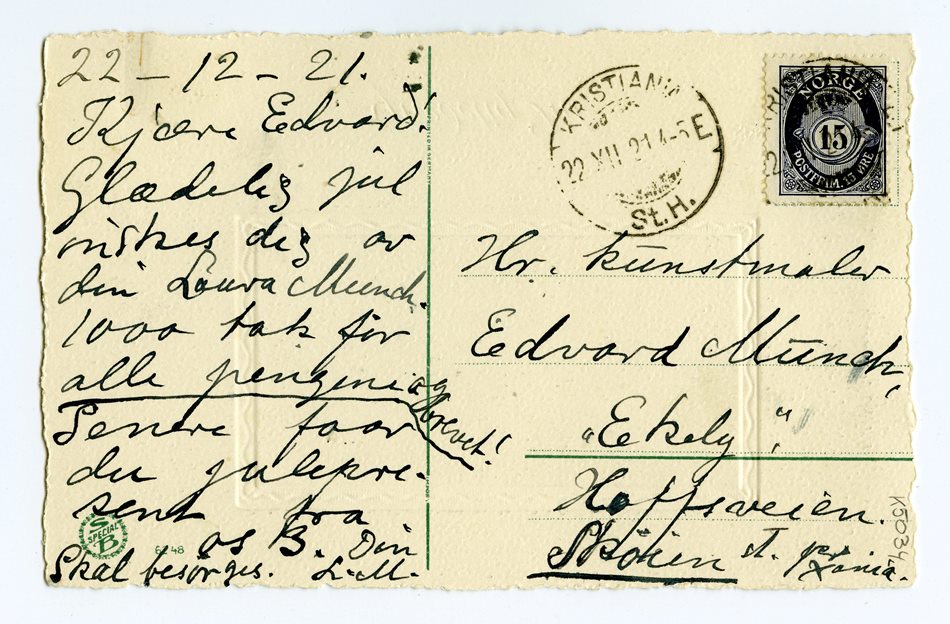 22 – 12 – 21.
Kjære Edvard!
Glædelig jul
önskes dig av
din Laura Munch.
1000 tak för
alle pengene og
brevet!
Senere faar
du julepre-
sent fra
os 3. Din
Skal besörges. L.M.
S SPECIAL B
6248
KRISTIANIA
22 XII 21 4-5 E
St.H.
NORGE
15
POSTFRIM. 15 ØRE
Hr. kunstmaler
Edvard Munch,
"Ekely",
Hoffsveien.
Sköien st. pr
Xania.
K5034